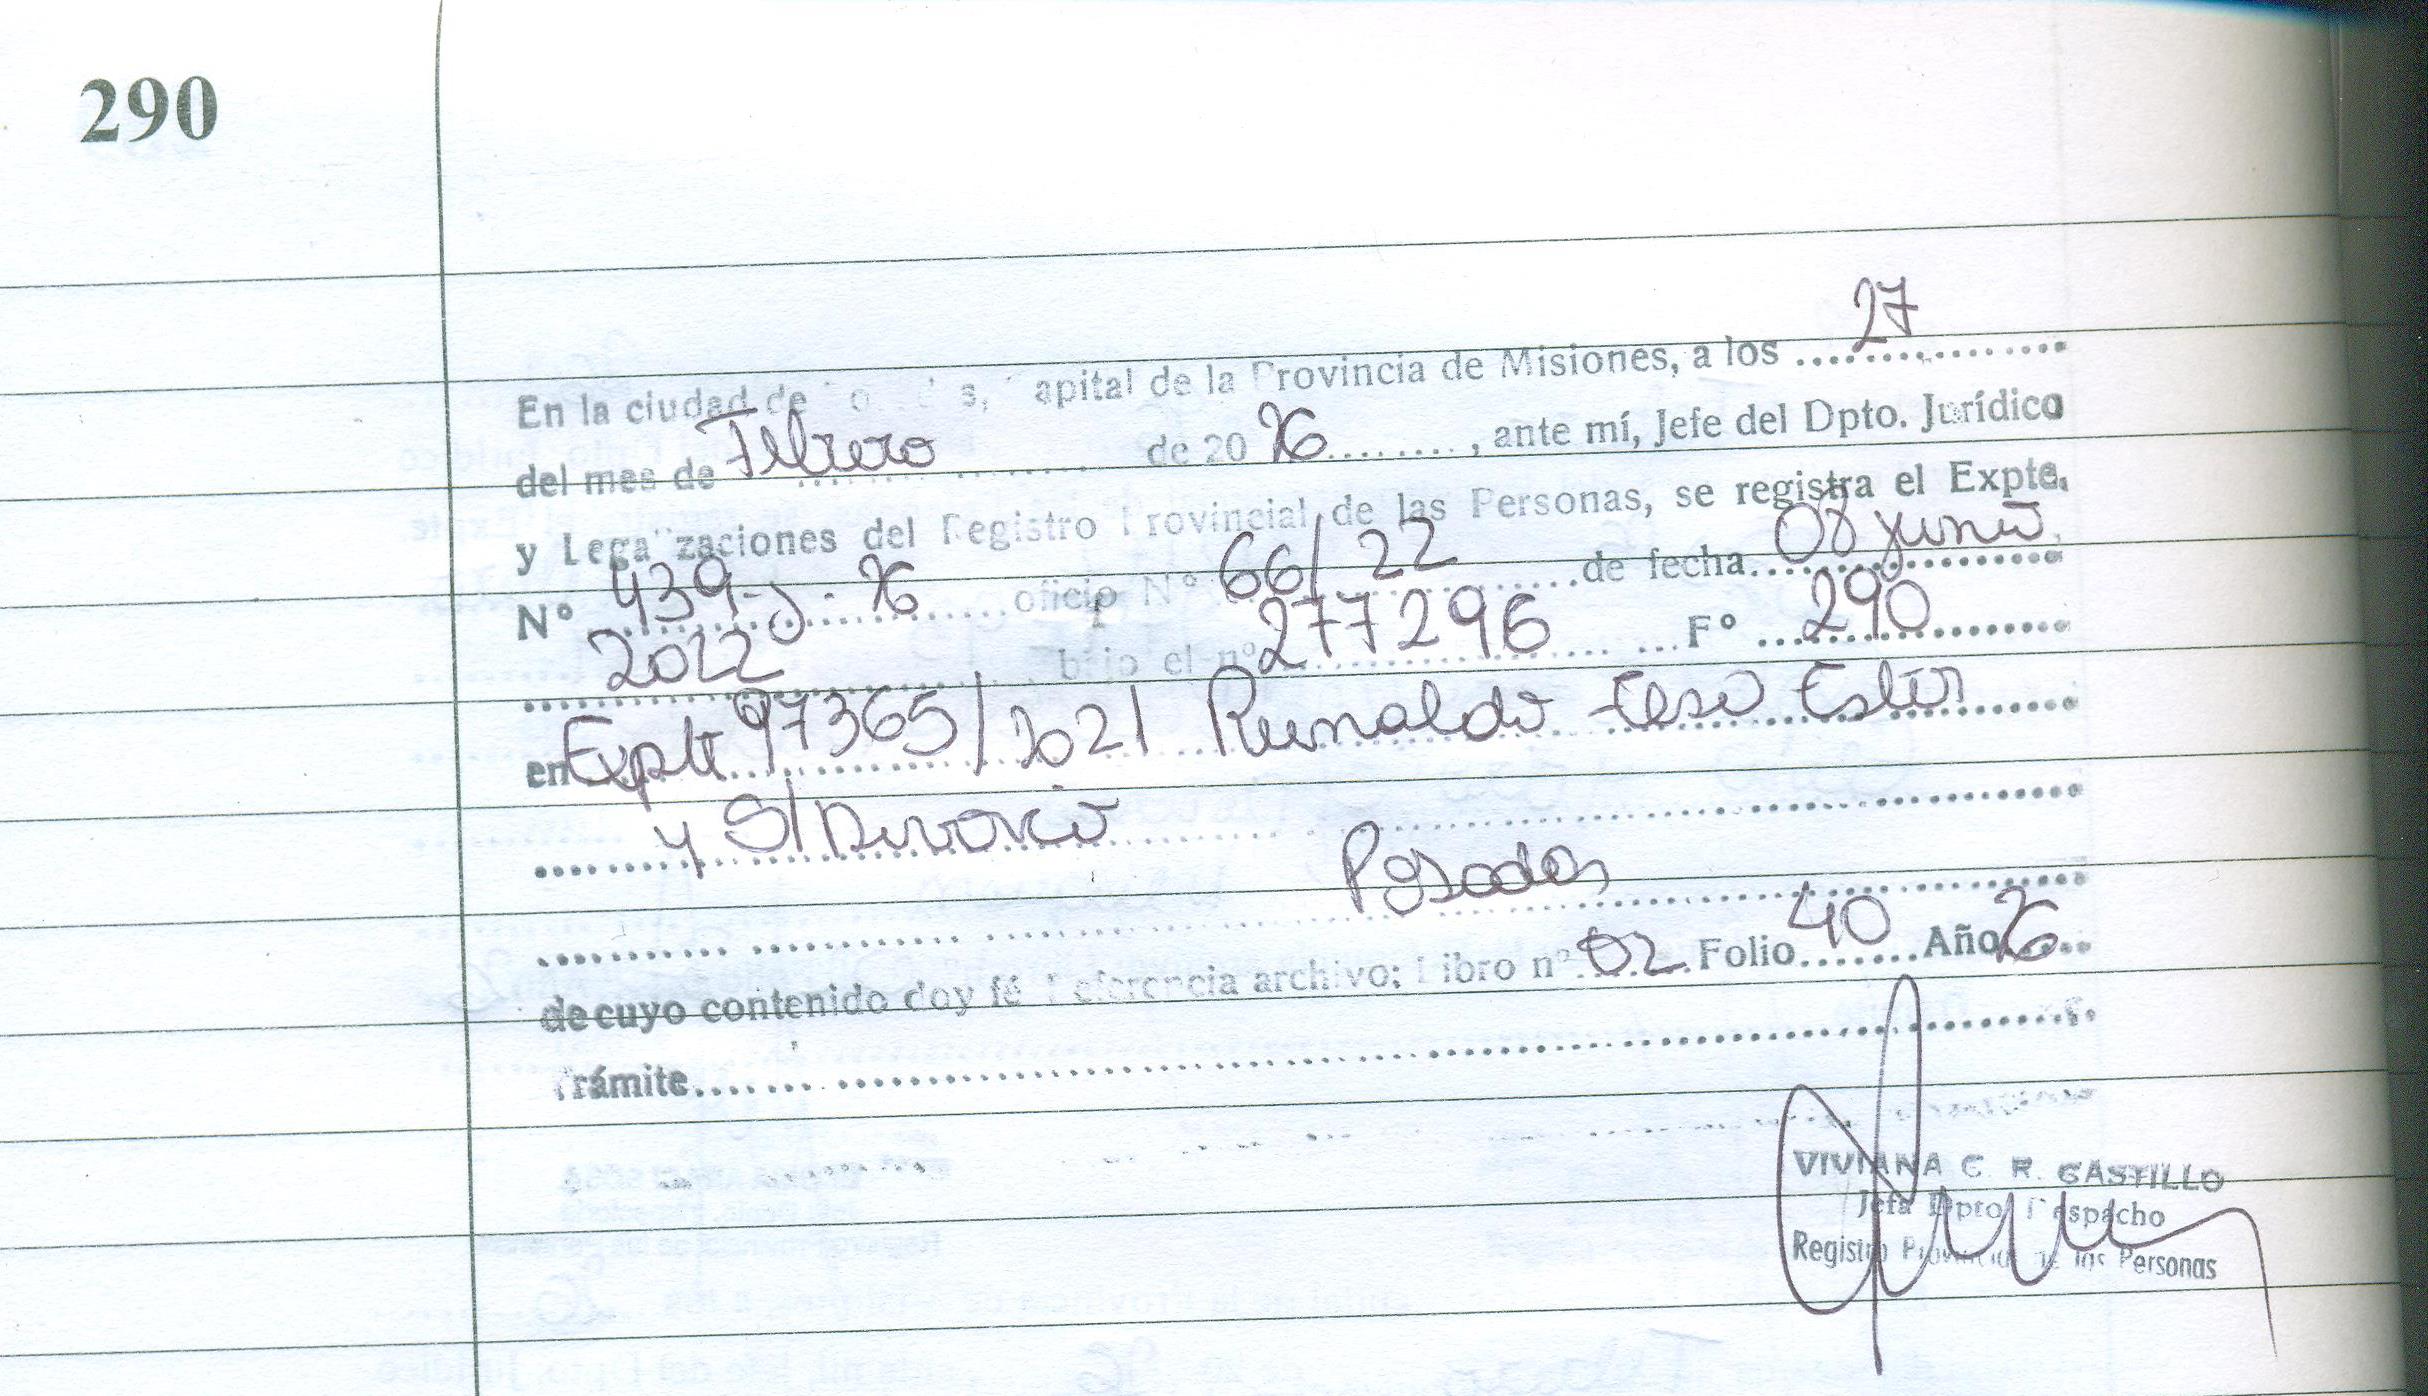 290
En la ciudad de Posadas, Capital de la Provincia de Misiones, a los 27
del mes de Febrero de 20 26, ante mí, Jefe del Dpto. Jurídico
y Legalizaciones del Registro Provincial de las Personas, se registra el Expte.
N° 439-J-26 oficio N° 66/22 de fecha 08 Junio
2022 bajo el n° 277296 F° 290
en Expte 97365/2021 Reinaldo Elsa Ester
y S/Divorcio
Posadas
de cuyo contenido doy fé Referencia archivo: Libro n° 02 Folio 40 Año 26
Trámite
VIVIANA C. R. CASTILLO
Jefa Dpto. Despacho
Registro Provincial de las Personas